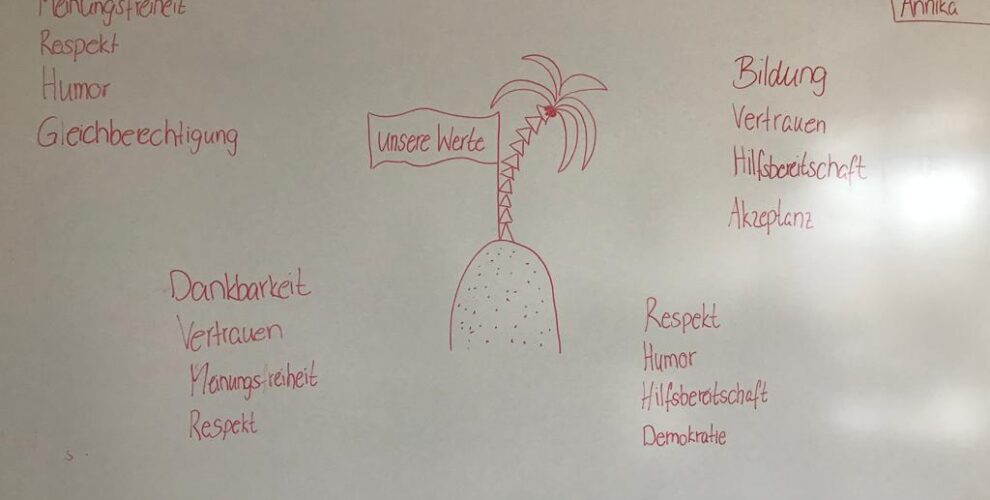 Meinungsfreiheit
Respekt
Humor
Gleichberechtigung
Annika
unsere Werte
Bildung
Vertrauen
Hilfsbereitschaft
Akzeptanz
Dankbarkeit
Vertrauen
Meinungsfreiheit
Respekt
Respekt
Humor
Hilfsbereitschaft
Demokratie